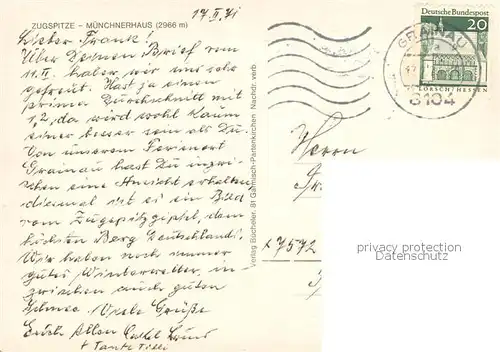 17.II.71
ZUGSPITZE – MÜNCHNERHAUS (2966 m)
Lieber Frank!
Über Deinen Brief vom
11.II. haben wir uns sehr
gefreut. Hast ja einen
prima Durchschnitt mit
1,2, da wird wohl kaum
einer besser sein als Du.
Von unserem Ferienort
Grainau hast Du inzwi-
schen eine Ansicht erhalten,
diesmal ist es ein Bild
vom Zugspitzgipfel, dem
höchsten Berg Deutschlands.
Wir haben noch immer
gutes Winterwetter, in-
zwischen auch guten
Schnee. Viele Grüße
Euch Allen Onkel
+ Tante Tilli
Verlag Bücheler, 81 Garmisch-Partenkirchen Nachdr. verb
Deutsche Bundespost
20
LORSCH/HESSEN
GRAINAU
8104
Herrn
7572
privacy protection
watermark